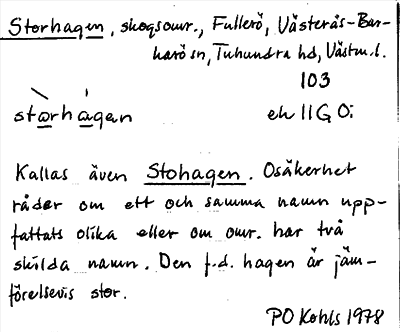 Storhagen, skogsomr., Fullerö, Västerås-Bar-
karö sn, Tuhundra hd, Västm.l.
103
storhagen ek 11 G 0i
Kallas även Stohagen. Osäkerhet
råder om ett och samma namn upp-
fattats olika eller om omr. har två
skilda namn. Den f.d. hagen är jäm-
förelsevis stor.
PO Kohls 1978